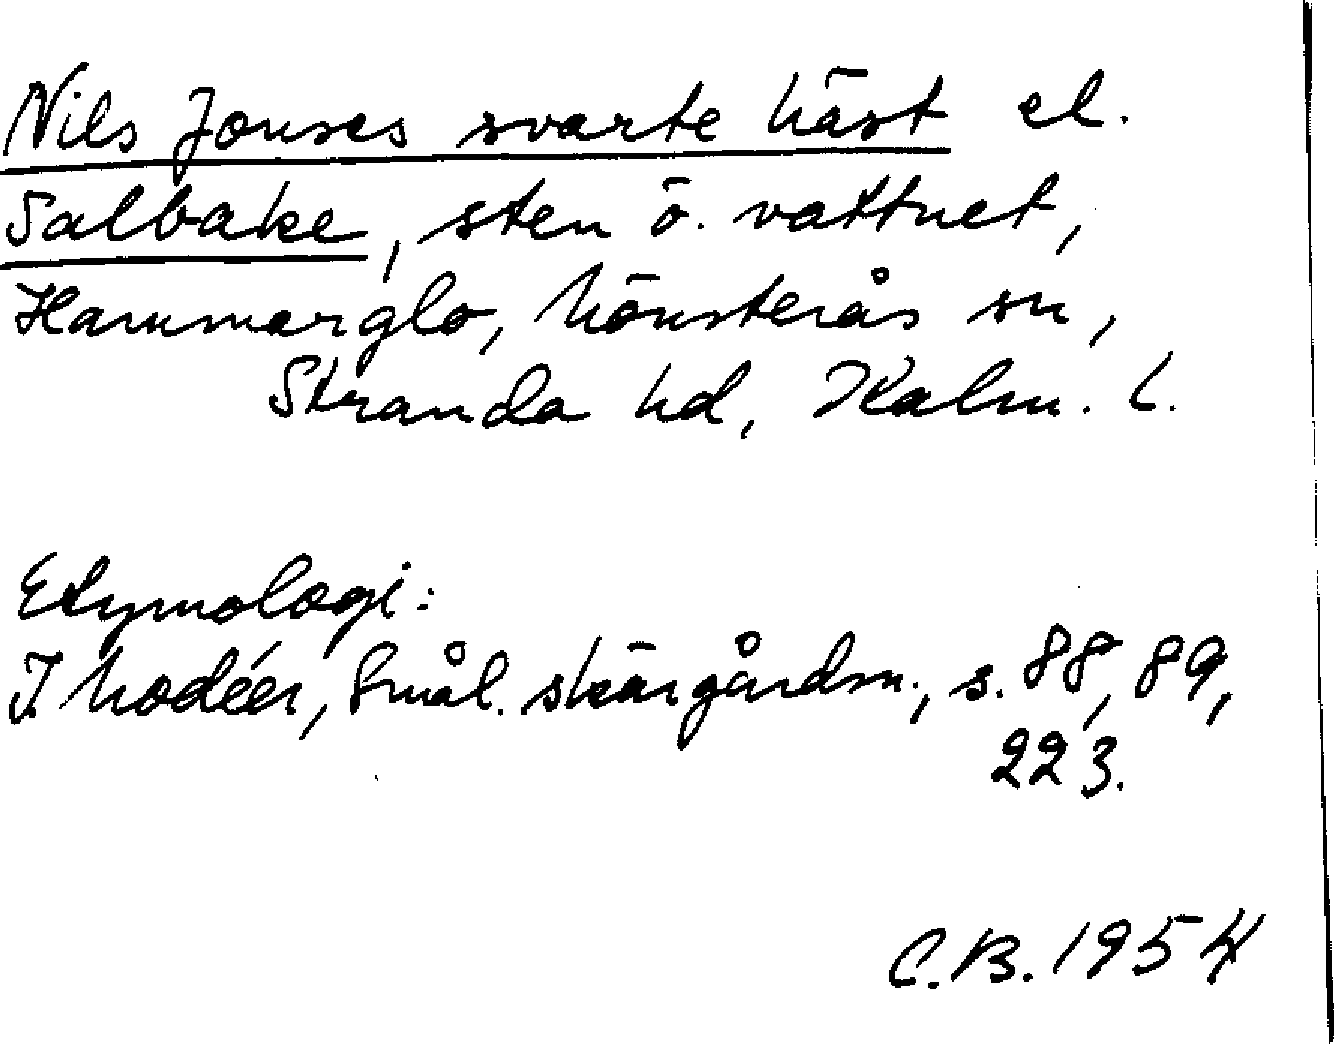 Nils Jonses svarte häst el.
Salbake, sten ö. vattnet,
Hammarglo, Mönsterås sn,
Stranda hd, Kalm. l.
Etymologi:
I. Modéer, Smål. skärgårdsn., s. 88, 89,
223.
C.B. 1954